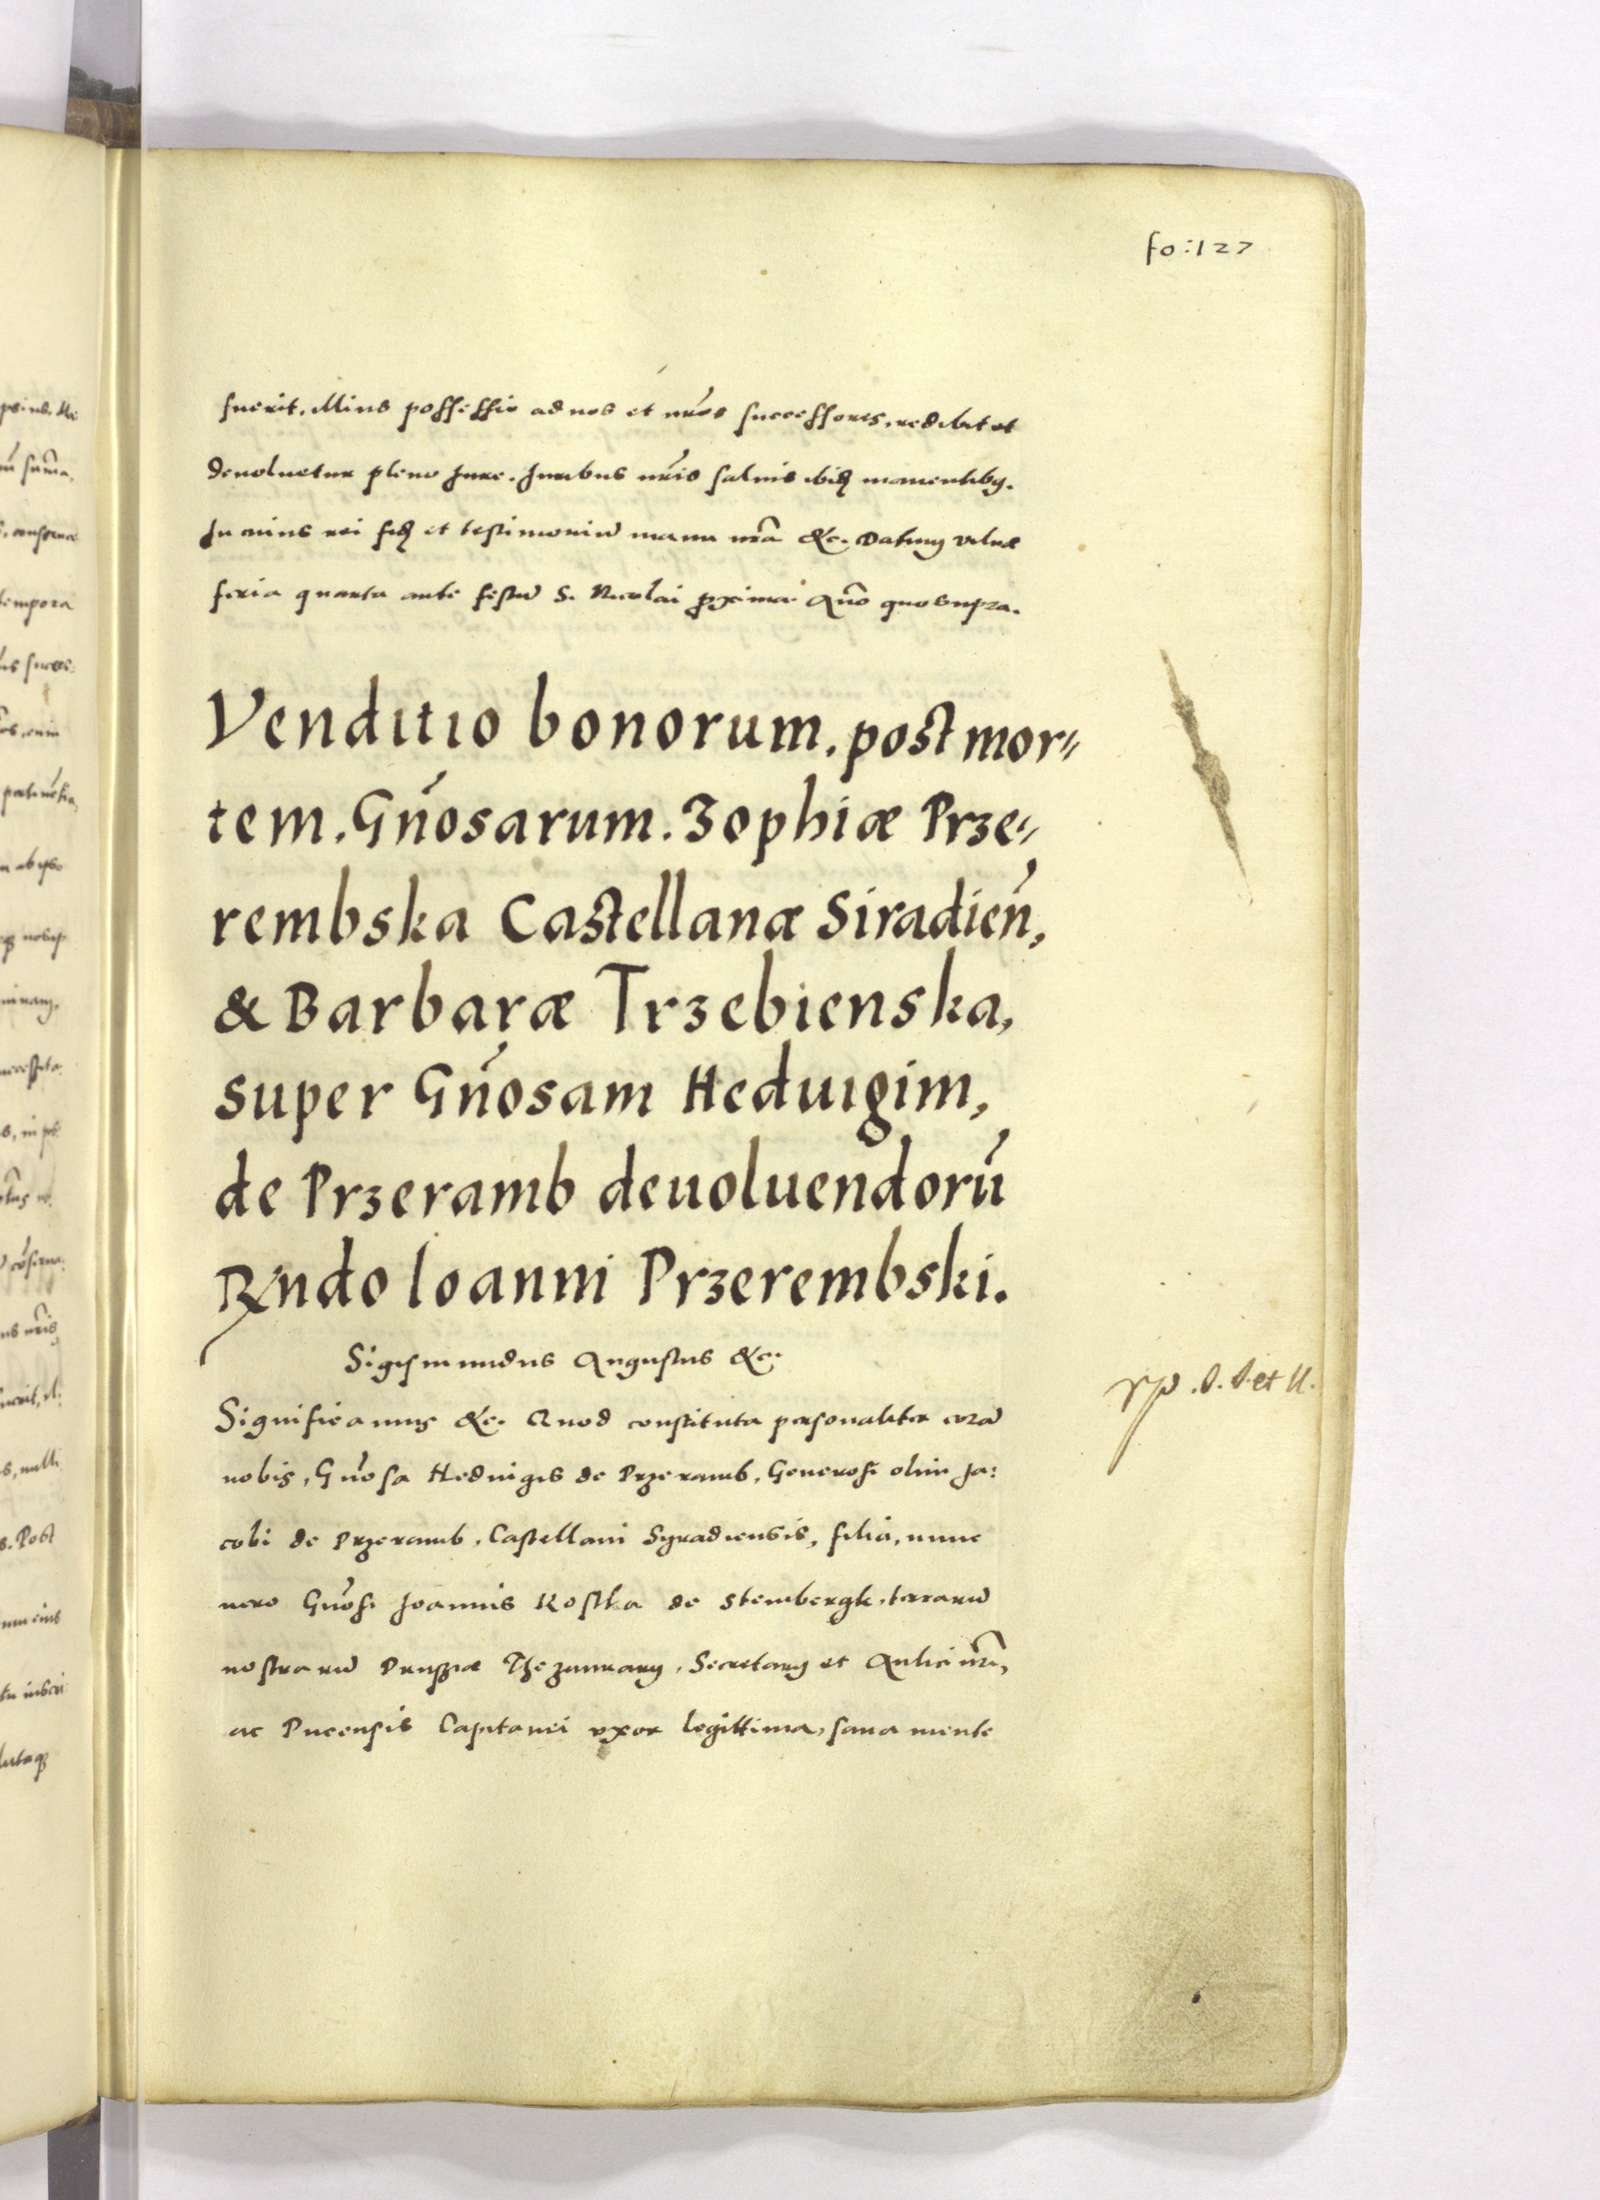 fo: 127
fuerit, illius possessio ad nos et nr̃os successores, redibit et
deuoluetur pleno Jure. Juribus nr̃is saluis ibidẽ manentibq.
In cuius rei fidẽ et testimoniũ manu nr̃a &c. Datum Vilnæ
feria quarta ante festũ S. Nicolai proxima. Año quo supra.
Venditio bonorum, post mor=
tem. Gñosarum. Zophiæ Prze=
rembska Castellanæ Siradieñ,
& Barbaræ Trzebienska,
super Gñosam Heduigim,
de Przeramb deuoluendorũ
Rndo Ioanni Przerembski.
Sigismundus Augustus &c.
Significamus &c. Quod constituta personaliter corã
nobis, Gñosa Heduigis de Przeramb, Generosi olim Ja:
cobi de Przeramb, Castellani Syradiensis, filia, nunc
uero Gñosi Joannis Kostka de Stembergk, terrarũ
nostrarũ Prussiæ Thezaurarij, Secretarij et Aulici nr̃i,
ac Pucensis Capitanei vxor legittima, sana mente